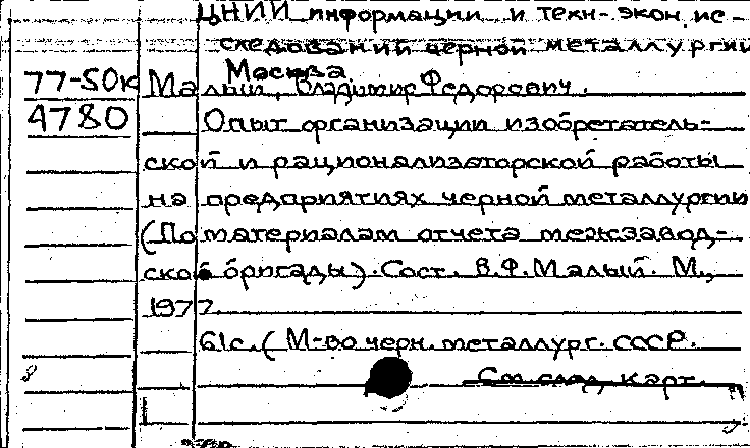 ЦНИИ информации и техн.-экон. ис-
следований черной металлургии
Москва.
77-50к Малый, Владимир Федорович.
4780 Опыт организации изобретатель-
ской и рационализаторской работы
на предприятиях черной металлургии
(По материалам отчета межзавод-
ской бригады). Сост. В.Ф. Малый. М.,
1977.
61с. (М-во черн. металлург. СССР.
См. след. карт.